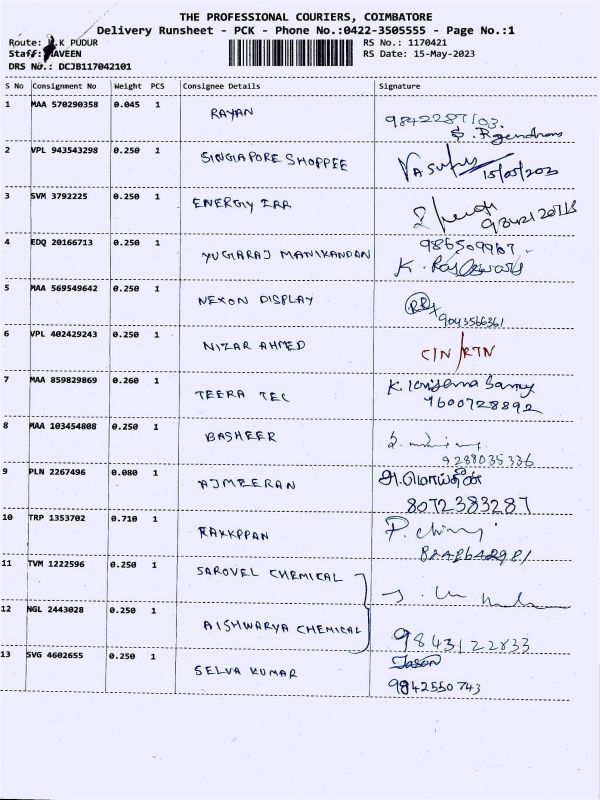 THE PROFESSIONAL COURIERS, COIMBATORE
Delivery Runsheet - PCK - Phone No.:0422-3505555 - Page No.:1
Route: K PUDUR
RS No.: 1170421
Staff: NAVEEN
RS Date: 15-May-2023
DRS No.: DCJB117042101
S No Consignment No Weight PCS Consignee Details Signature
1 MAA 570290358 0.045 1 RAYAN
2 VPL 943543298 0.250 1 SINGAPORE SHOPPEE 15/05/2023
3 SVM 3792225 0.250 1 ENERGY
4 EDQ 20166713 0.250 1 YUGARAJ MANIKANDAN
K.
5 MAA 569549642 0.250 1 NEXON DISPLAY
9043566361
6 VPL 402429243 0.250 1 NIZAR AHMED CIN/RTN
7 MAA 859829869 0.260 1 TEERA TEC
9600728892
8 MAA 103454808 0.250 1 BASHEER
9288035336
9 PLN 2267496 0.080 1 AJMEERAN அ.மொய்தீன்
8072383287
10 TRP 1353702 0.710 1 P.
11 TVM 1222596 0.250 1 SAROVEL CHEMICAL
12 NGL 2443028 0.250 1 AISHWARYA CHEMICAL
9843122833
13 SVG 4602655 0.250 1 SELVA KUMAR Jason
9842550743